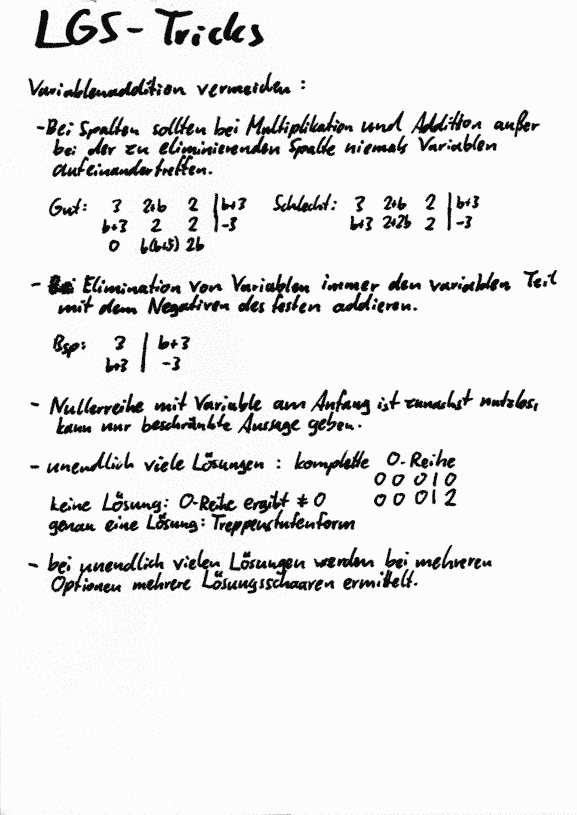 LGS-Tricks
Variablenaddition vermeiden:
-Bei Spalten sollten bei Multiplikation und Addition außer
bei der zu eliminierenden Spalte niemals Variablen
aufeinandertreffen.
Gut: 3 2+b 2 | b+3 Schlecht: 3 2+b 2 | b+3
b+3 2 2 | -3 b+3 2+2b 2 | -3
0 b(b+5) 2b
- Bei Elimination von Variablen immer den variablen Teil
mit dem Negativen des festen addieren.
Bsp: 3 | b+3
b+3 | -3
- Nullerreihe mit Variable am Anfang ist zunächst nutzlos,
kann nur beschränkte Aussage geben.
- unendlich viele Lösungen: komplette 0-Reihe
0 0 0 | 0
keine Lösung: 0-Reihe ergibt ≠ 0 0 0 0 | 2
genau eine Lösung: Treppenstufenform
- bei unendlich vielen Lösungen werden bei mehreren
Optionen mehrere Lösungsschaaren ermittelt.